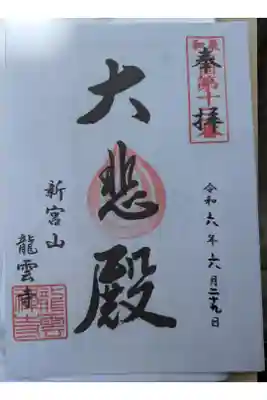 奉拝
大悲殿
令和六年六月二十九日
新宮山
龍雲寺